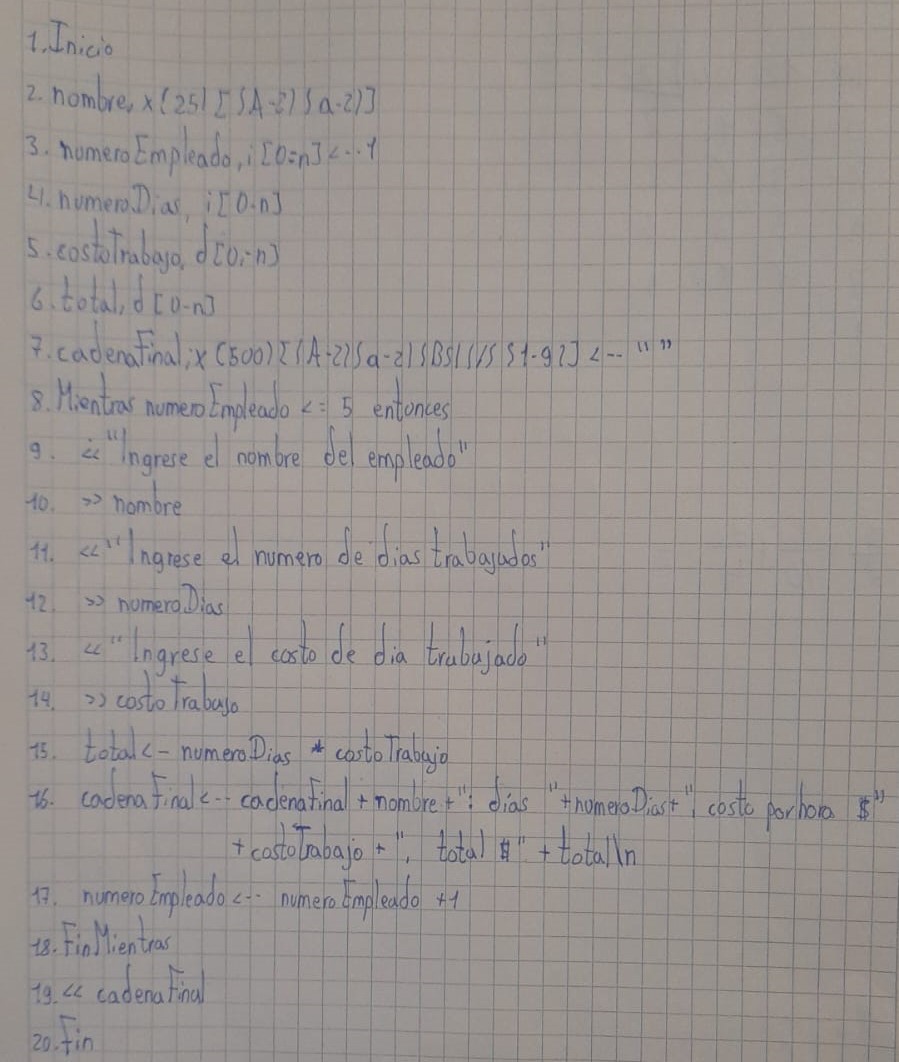 1. Inicio
2. nombre, x(25) [{A-z}{a-z}]
3. numeroEmpleado, i [0-n] <-- 1
4. numeroDias, i [0-n]
5. costoTrabajo, d [0,-n]
6. total, d [0-n]
7. cadenaFinal, x (500) [{A-z}{a-z}{BS}{/}{1-9}] <-- " "
8. Mientras numeroEmpleado <= 5 entonces
9. << "Ingrese el nombre del empleado"
10. >> nombre
11. << "Ingrese el numero de dias trabajados"
12. >> numeroDias
13. << "Ingrese el costo de dia trabajado"
14. >> costoTrabajo
15. total <- numeroDias * costoTrabajo
16. cadenaFinal <-- cadenaFinal + nombre + ": dias " + numeroDias + ", costo por hora $"
+ costoTrabajo + ", total $" + total \n
17. numeroEmpleado <-- numeroEmpleado +1
18. FinMientras
19. << cadenaFinal
20. Fin